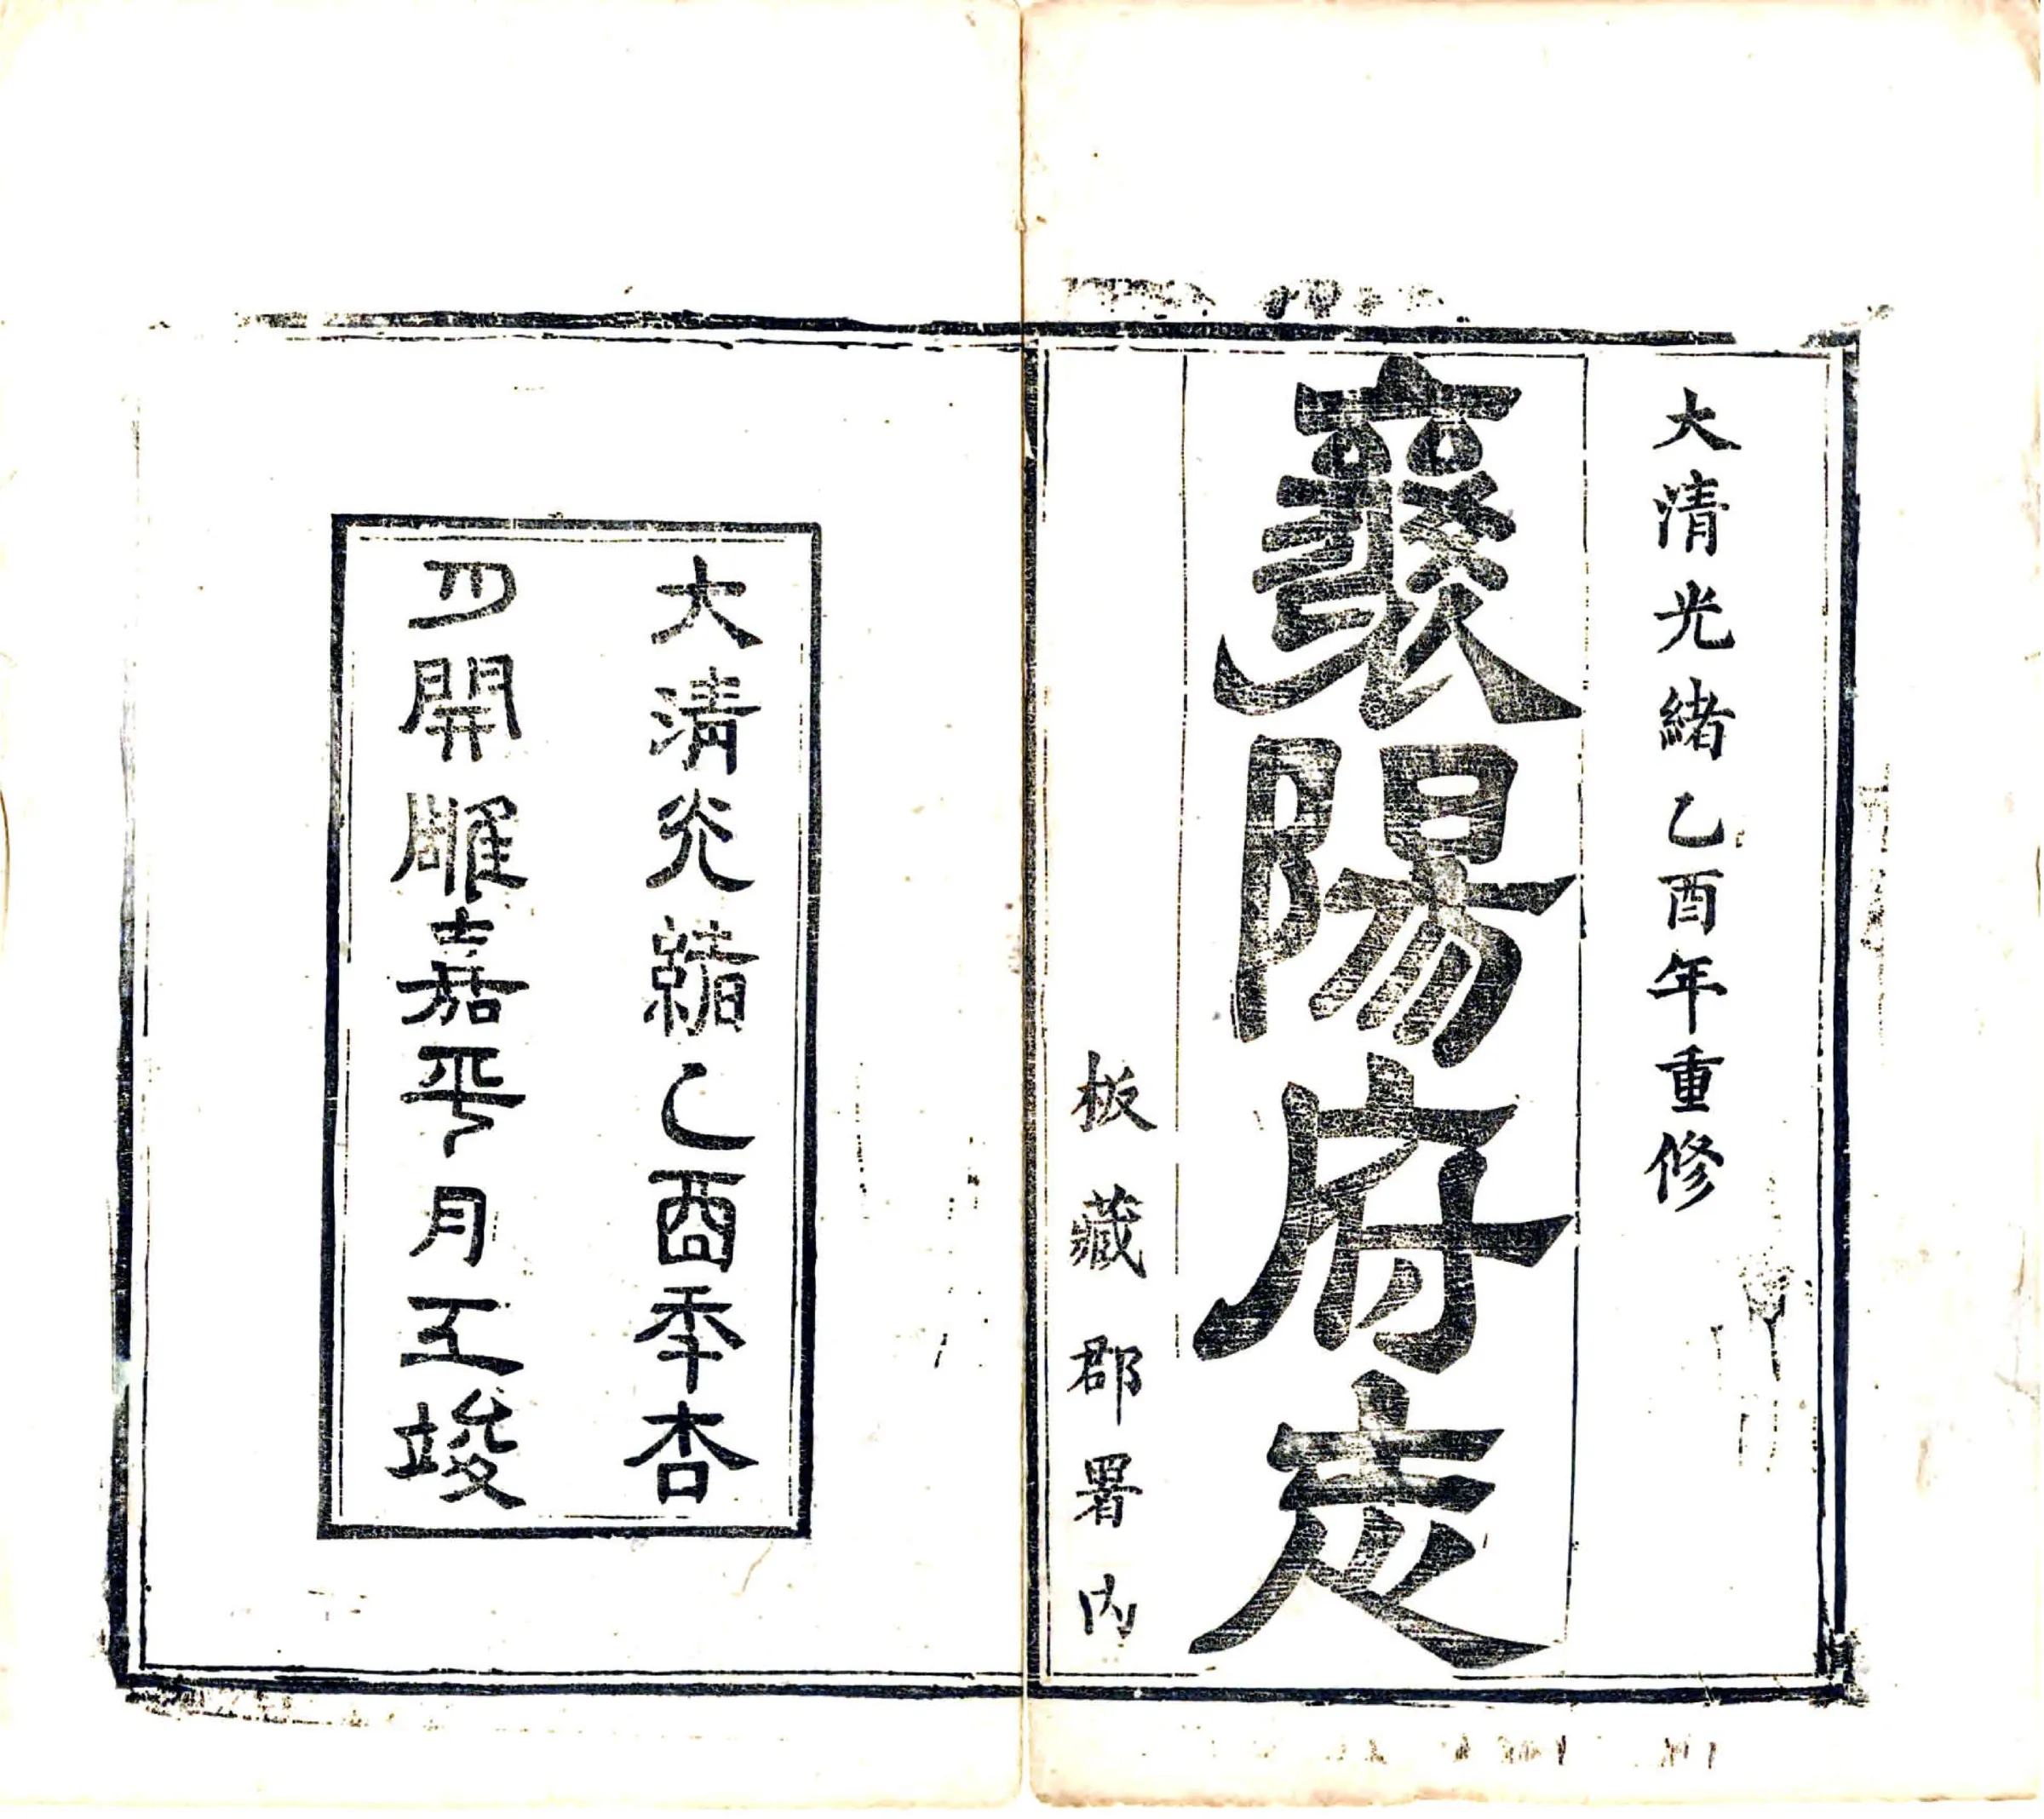 大清光緒乙酉年重修
襄陽府志
板藏郡署内
大清光緒乙酉秊杏
月開雕嘉平月工竣